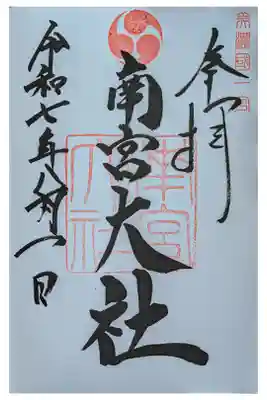 奉拝
美濃國一宮
南宮大社
令和七年八月一日